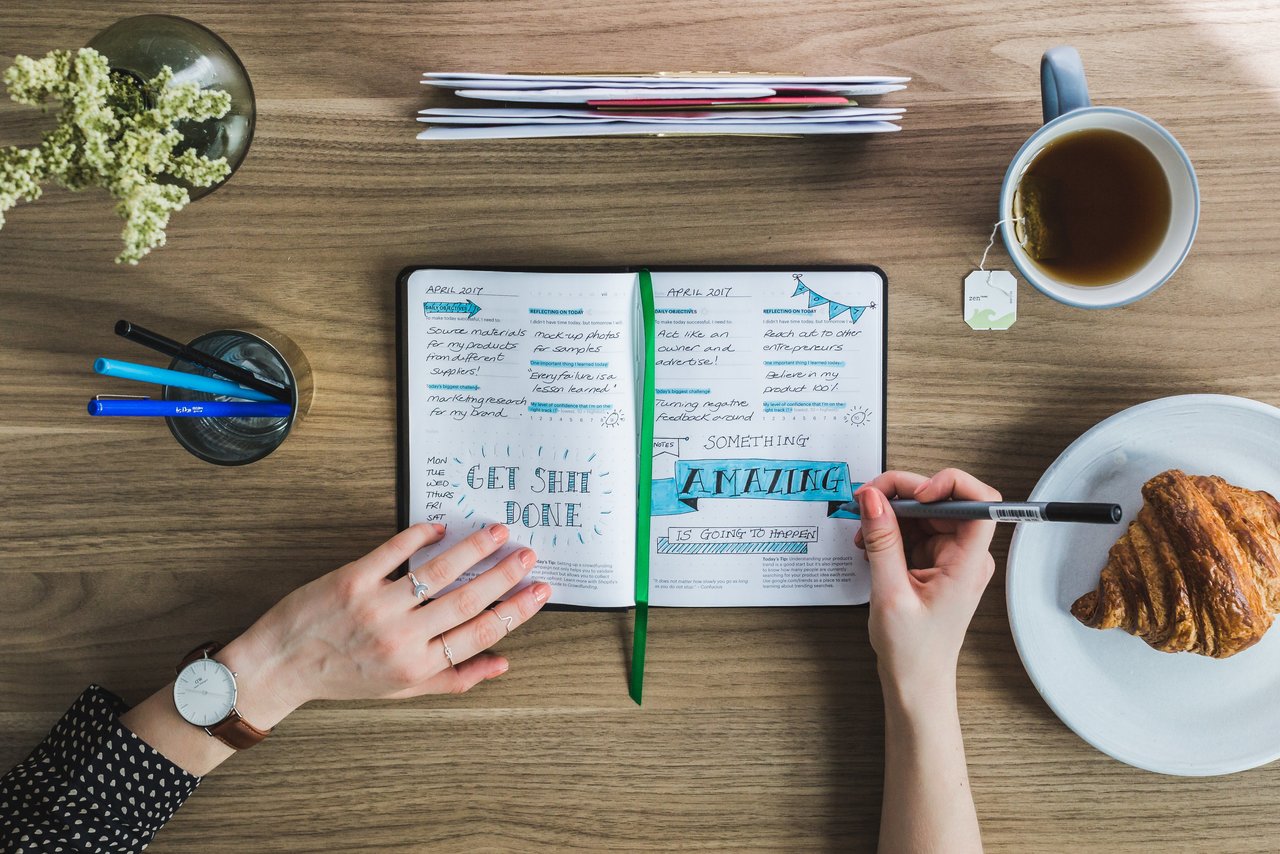 APRIL 2017
DAILY OBJECTIVES
To make today successful, I need to:
Source materials
for my products
from different
suppliers!
Today's biggest challenge
marketing research
for my brand...
REFLECTING ON TODAY
I didn't have time today, but tomorrow I will
mock-up photos
for samples
One important thing I learned today:
"Every failure is a
lesson learned"
My level of confidence that I'm on the
right track (1 = lowest, 10 = highest)
MON
TUE
WED
THURS
FRI
SAT
GET SHIT
DONE
Today's Tip: Setting up a crowdfunding
campaign not only helps to validate
your product but allows you to collect
APRIL 2017
DAILY OBJECTIVES
To make today successful, I need to:
Act like an
owner and
advertise!
Today's biggest challenge
Turning negative
feedback around
REFLECTING ON TODAY
I didn't have time today, but tomorrow I will
Reach out to other
entrepreneurs
One important thing I learned today:
Believe in my
product 100%
My level of confidence that I'm on the
right track (1 = lowest, 10 = highest)
NOTES
SOMETHING
AMAZING
IS GOING TO HAPPEN
"It does not matter how slowly you go as long
as you do not stop." - Confucius
Today's Tip: Understanding your product
trend is a good start but it's also important
to know how many people are currently
searching for your product idea each month.
Use google.com/trends as a place to start
learning about trending searches.
zen